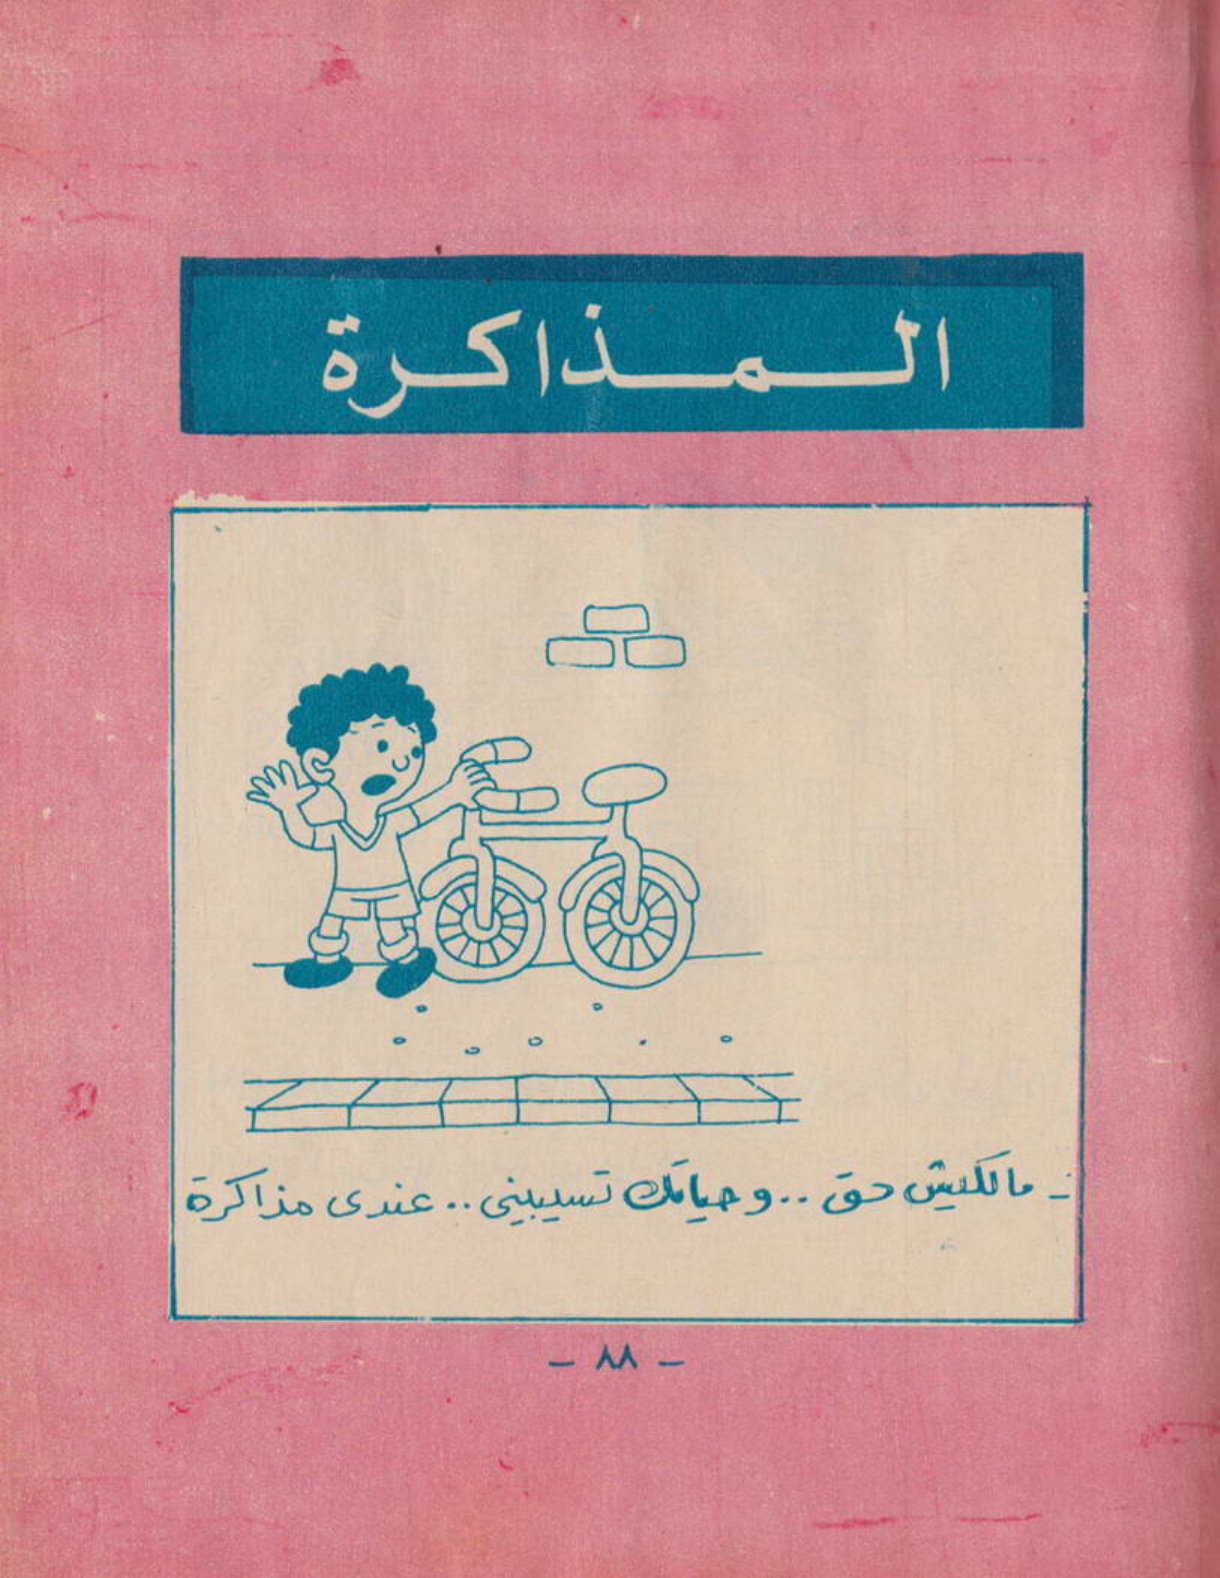 المذاكرة
- مالكيش حق .. وحياتك تسيبيني .. عندى مذاكرة
- ٨٨ -